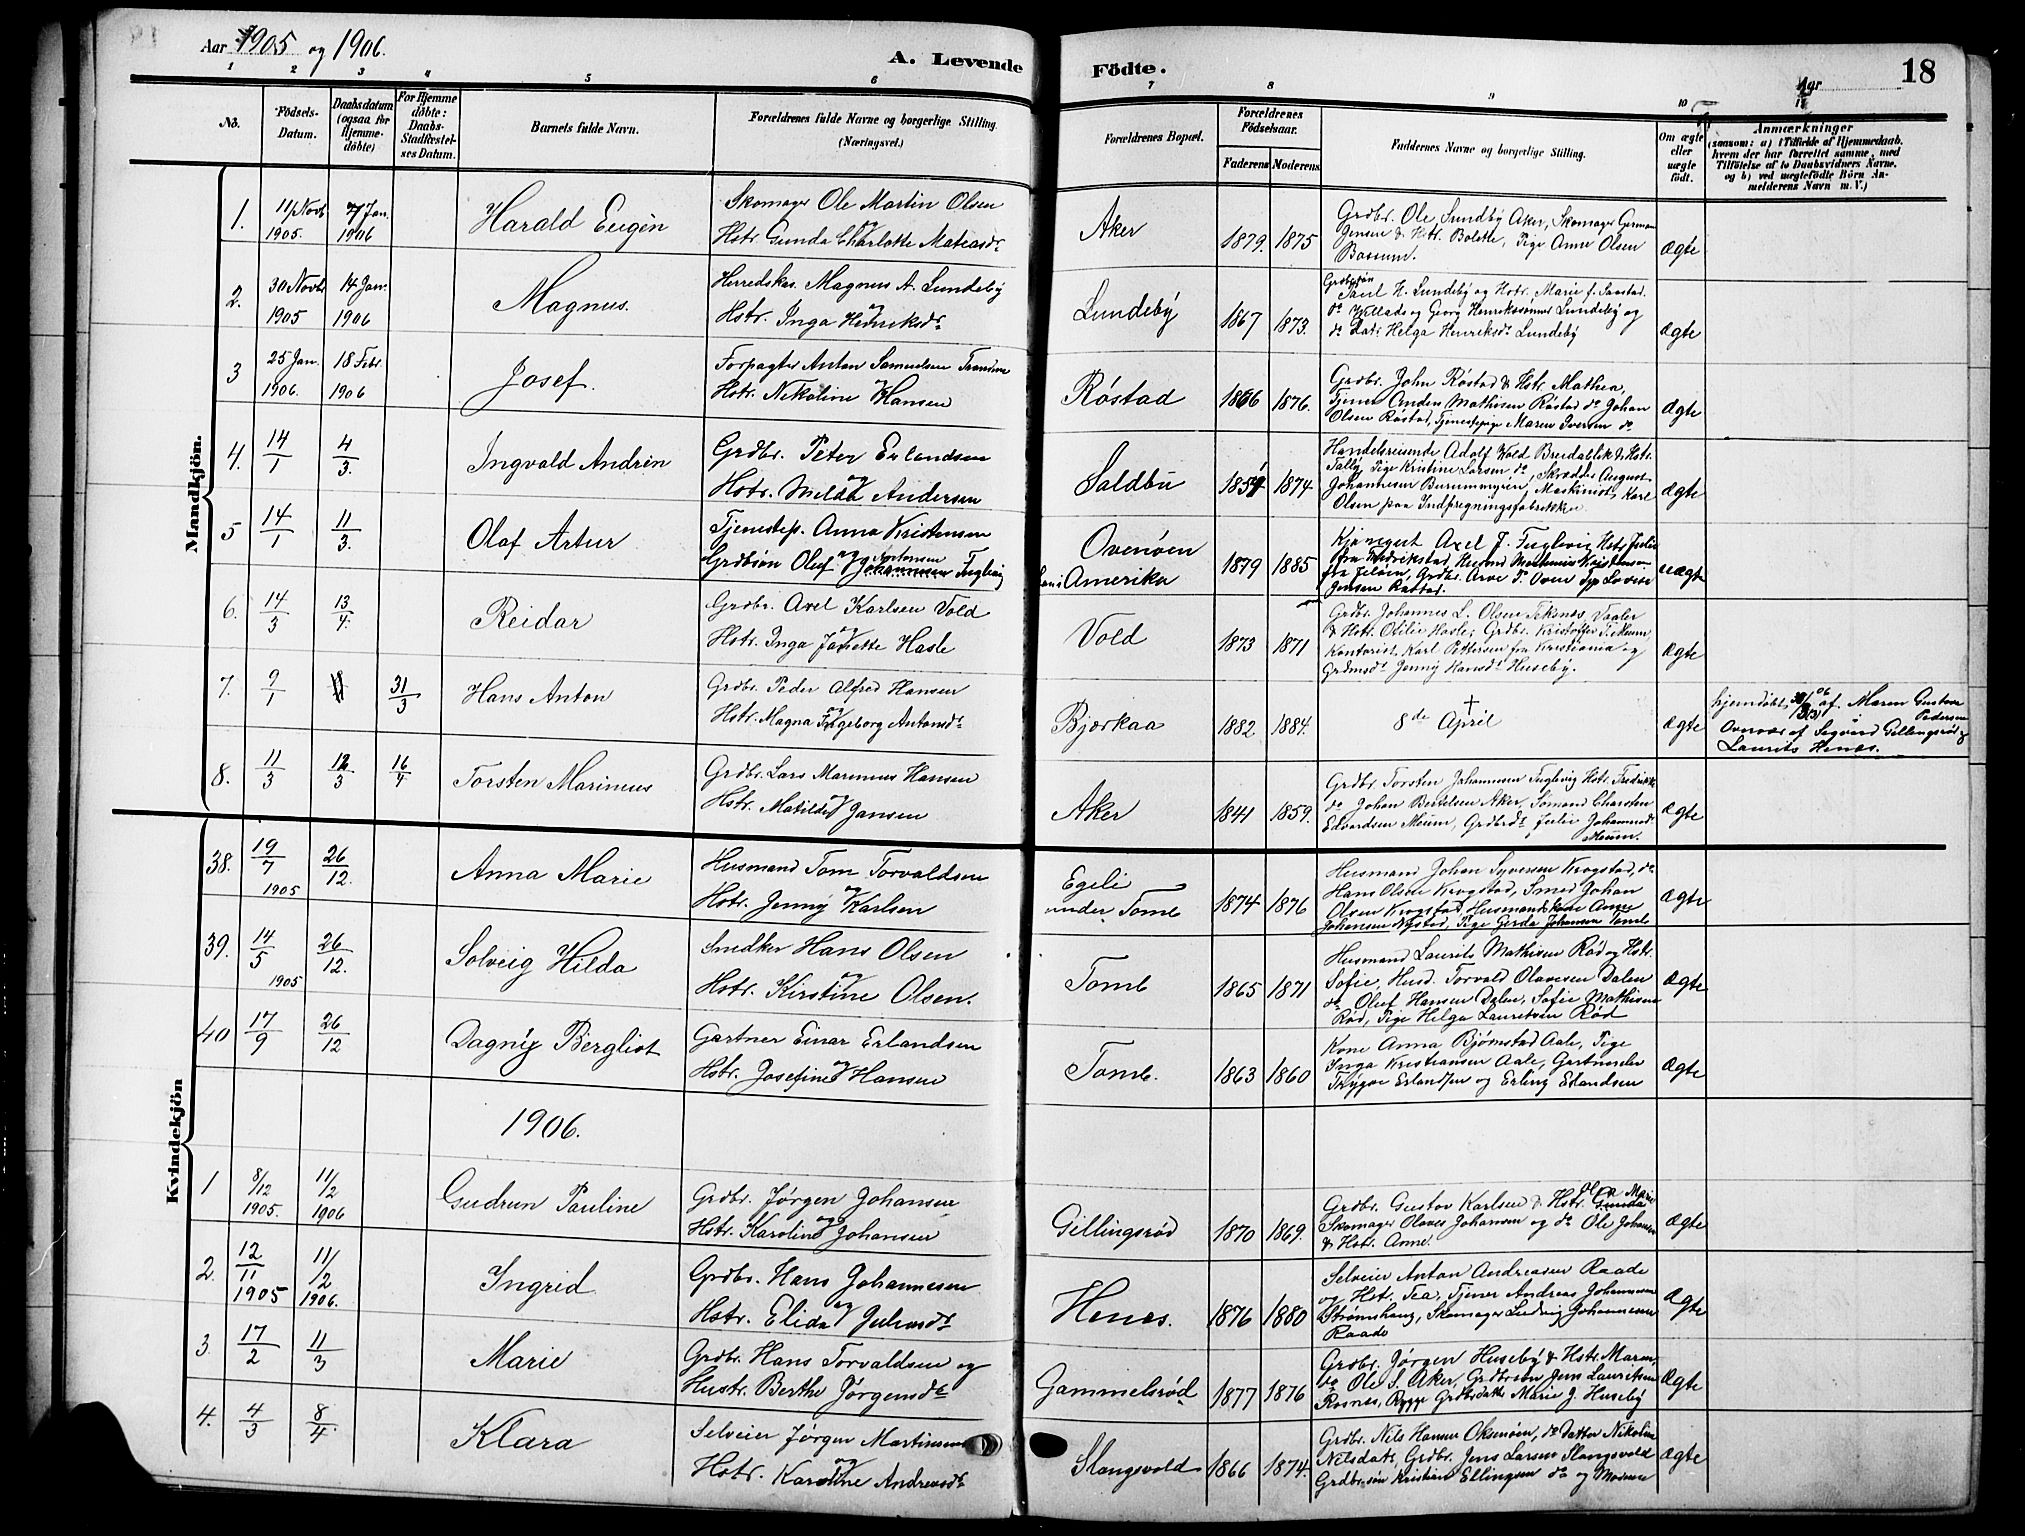 Aar 1905 og 1906.
A. Levende Födte.
Aar
18
1 2 3 4 5 6 7 8 9 10
No.
Födsels-Datum.
Daabsdatum (ogsaa for Hjemmedöbte)
For Hjemmedöbte: Daabs-Stadfæstelses Datum.
Barnets fulde Navn.
Forældrenes fulde Navne og borgerlige Stilling. (Næringsvei.)
Forældrenes Bopæl.
Forældrenes Födselsaar.
Faderens Moderens
Faddernes Navne og borgerlige Stilling.
Om ægte eller uægte födt.
Anmærkninger
(saasom: a) i Tilfælde af Hjemmedaab, hvem der har forrettet samme, med Tilföielse af to Daabsvidners Navne. og b) ved uægtefödte Börn Anmelderens Navn m. V.)
Mandkjön.
1. 11 Novb. 1905. 7 Jan. 1906 Harald Eugén
Skomager Ole Martin Olsen
og
Hstr. Gunda Charlotte Matiasdr.
Aker 1879. 1875
Grdbr. Ole Lundby Aker, Skomager German
Jensen & Hstr. Bolette, Pige Anne Olsen
Bossum.
Ægte
2. 30 Novbr 1905 14 Jan. 1906 Magnus.
Herredskas. Magnus A. Lundeby
og
Hstr. Inga Henriksdr.
Lundeby 1867 1873.
Paul H. Lundeby og Hstr. Marie f. Saastad.
do Willads og Georg Henrikssønner Lundeby og
do Datr. Helga Henriksdr. Lundeby
Ægte
3 25 Jan. 1906. 18 Febr. 1906 Josef.
Forpagter Anton Samuelsen
og
Hstr. Nikoline Hansen
Røstad 1866 1876.
Grdbr. John Røstad & Hstr. Mathea,
Tjener Anders Mathisen Røstad do Johan
Olsen Røstad, Tjenestepige Maren Iversen do
Ægte
4. 14/1 4/3. Ingvald Andrén
Grdbr. Peter Erlandsen
og
Hstr. Milda Andersen
Saldbu 1854 1874
Handelsreisende Adolf Wold Breidablik & Hstr.
Pige Kristine Larsen do, Skrædder August
Johannesen Burummyren, Maskinist Karl
Olsen paa Indpregningsfabrikken.
Ægte
5 14/1 11/3. Olaf Artur
Tjenestep. Anna Kristensen
og Antonsen
Grdbsøn Oluf Johannesen Fuglevig
Ovenøen
Amerika 1879 1885
Axel J. Fuglevig Hstr. Julie
fra Fredrikstad, Husmd Martinius Kristensen
Grdbr. Arve P. Oven
Jensen Røstad.
uægte
6. 14/3 13/4. Reidar
Grdbr. Axel Karlsen Vold
og
Hstr. Inga Janette Hasle
Vold 1873 1871
Grdbr. Johannes L. Olsen Tekenes, Vaaler
& Hstr. Otilie Hasle; Grdbr. Kristoffer P. Meum,
Kontorist Karl Pettersen fra Kristiania og
Grdmsdr. Jenny Hansdr. Huseby.
Ægte
7. 9/1 31/3 Hans Anton
Grdbr. Peder Alfred Hansen
og
Hstr. Magna Ingeborg Antonsdr.
Bjørkaa 1882 1884.
†
8de April
Ægte
hjemdøbt af Maren Gustava
Pedersen
Overvær af Sigvard Gillingsrød &
Laurits Henes.
8. 11/3 12/3 16/4 Torsten Marinius
Grdbr. Lars Marinius Hansen
og
Hstr. Matilde Jansen
Aker 1841 1859.
Grdbr. Torsten Johannesen Fuglevig Hstr. Fredrikke
do Johan Bertelsen Aker, Sømand Charsten
Edvardsen Meum, Grdbrdr. Julie Johannesdr.
Meum.
Ægte
Kvindekjön
38. 19/7 1905 26/12. Anna Marie
Husmand Tom Torvaldsen
og
Hstr. Jenny Karlsen
Egeli
under Tomb 1874 1876
Husmand Johan Syversen Krogstad, do
Hans Olsen Krogstad, Smed Johan
Olsen Krogstad, Husmandskone Anne
Johansen Nystad, Pige Gerda Johansen Tomb
Ægte
39. 14/5 1905 26/12. Solveig Hilda
Snedker Hans Olsen
og
Hstr. Kirstine Olsen.
Tomb 1865 1871
Husmand Laurits Mathisen Rød og Hstr.
Sofie, Husd. Torvald Olavesen Dalen
do Oluf Hansen Dalen, Sofie Mathisen
Rød, Pige Helga Lauritsen Rød
Ægte
40 17/9 26/12 Dagny Bergliot
Gartner Einar Erlandsen
og
Hstr. Josefine Hansen
Tomb. 1863 1860
Kone Anna Bjørnstad Aale, Pige
Inga Kristiansen Aale, Gartnerelev
Trygve Erlandsen og Erling Erlandsen
Ægte
1906.
1 8/12 1905. 11/2 1906 Gudrun Pauline
Grdbr. Jørgen Johansen
og
Hstr. Karoline Johansen
Gillingsrød 1870 1869.
Grdbr. Gustav Karlsen & Hstr. Marie
Skomager Olaves Johansen og do Ole Johansen
& Hstr. Anne.
Ægte
2. 12/11 1905 11/2 1906. Ingrid
Grdbr. Hans Johannesen
og
Hstr. Elida Juliusdr.
Henes. 1876 1880
Selveier Anton Andreasen Raade
og Hst. Tea, Tjener Andreas Johannesen
Strømshaug, Skomager Ludvig Johannesen
Raade
Ægte
3. 17/2 11/3 Marie
Grdbr. Hans Torvaldsen og
Hustr. Berthe Jørgensdr.
Gammelsrød 1877 1876
Grdbr. Jørgen Huseby & Hstr. Maren,
do Ole S. Aker, Grdbrsøn Jens Lauritsen
Rosnes, Rygge Grdbrdatter Marie J. Huseby
Ægte
4. 4/3 8/4 Klara
Selveier Jørgen Martinsen
og
Hstr. Karoline Andreasdr.
Slangsvold 1866 1874.
Grdbr. Nils Hansen Oksenøen, do Datter Nikoline
Nilsdatr, Grdbr. Jens Larsen Slangsvold
Grdbrsøn Kristian Ellingsen do og
Ægte